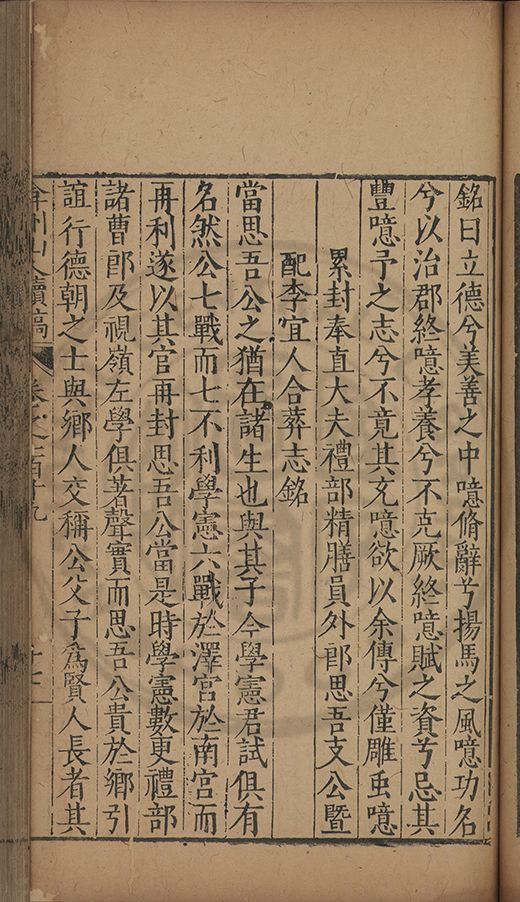 銘曰立德兮美善之中噫脩辭兮揚馬之風噫功名
兮以治郡終噫孝養兮不克厥終噫賦之資兮忌其
豐噫予之志兮不竟其充噫欲以余傳兮僅雕虫噫
累封奉直大夫禮部精膳員外郎思吾支公暨
配李宜人合葬志銘
當思吾公之猶在諸生也與其子今學憲君試俱有
名然公七戰而七不利學憲六戰於澤宮於南宮而
再利遂以其官再封思吾公當是時學憲數更禮部
諸曹郎及視嶺左學俱著聲實而思吾公貴於鄉引
誼行德朝之士與鄉人交稱公父子為賢人長者其
弇州山人續稿 卷之一百十九 十七